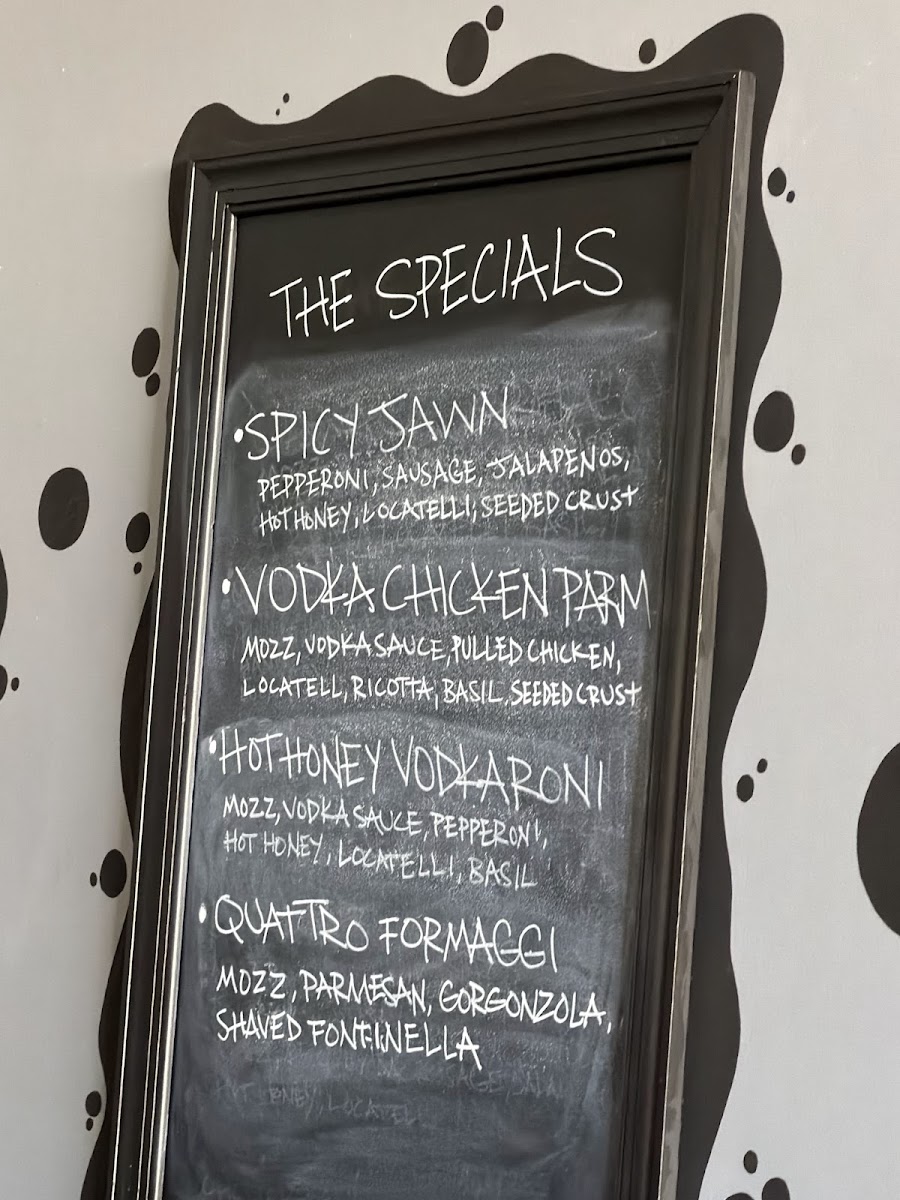 THE SPECIALS
•SPICY JAWN
PEPPERONI, SAUSAGE, JALAPENOS,
HOT HONEY, LOCATELLI, SEEDED CRUST
•VODKA CHICKEN PARM
MOZZ, VODKA SAUCE, PULLED CHICKEN,
LOCATELL, RICOTTA, BASIL. SEEDED CRUST
•HOT HONEY VODKARONI
MOZZ, VODKA SAUCE, PEPPERONI,
HOT HONEY, LOCATELLI, BASIL
•QUATTRO FORMAGGI
MOZZ, PARMESAN, GORGONZOLA,
SHAVED FONTINELLA